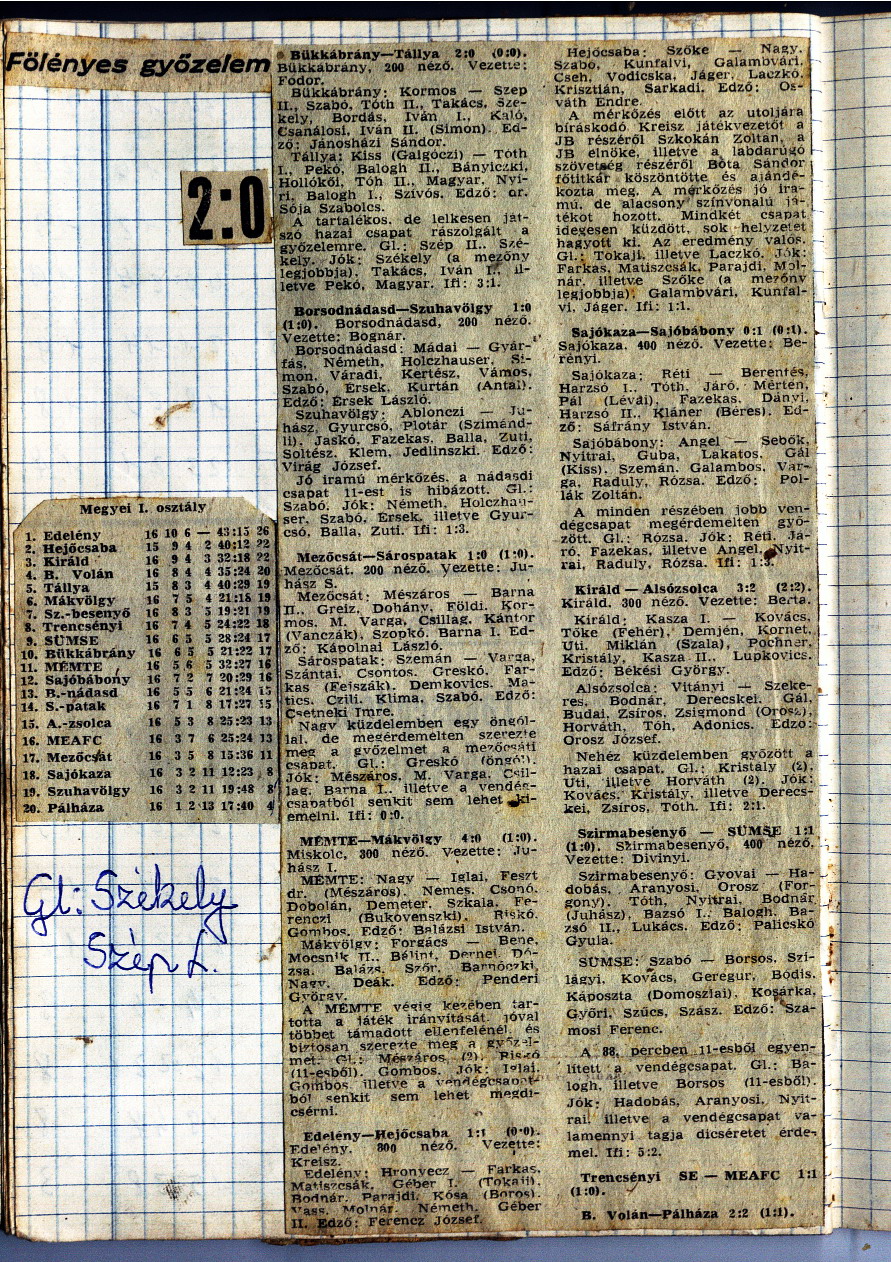 Fölényes győzelem
2:0
Megyei I. osztály
1. Edelény 16 10 6 — 43:15 26
2. Hejőcsaba 15 9 4 2 40:12 22
3. Királd 16 9 4 3 32:18 22
4. B. Volán 16 8 4 4 35:24 20
5. Tállya 15 8 3 4 40:29 19
6. Mákvölgy 16 7 5 4 21:18 19
7. Sz.-besenyő 16 8 3 5 19:21 19
8. Trencsényi 16 7 4 5 24:22 18
9. SÜMSE 16 6 5 5 28:24 17
10. Bükkábrány 16 6 5 5 21:22 17
11. MÉMTE 16 5 6 5 32:27 16
12. Sajóbábony 16 7 2 7 20:29 16
13. B.-nádasd 16 5 5 6 21:24 15
14. S.-patak 16 7 1 8 17:27 15
15. A.-zsolca 16 5 3 8 25:23 13
16. MEAFC 16 3 7 6 25:24 13
17. Mezőcsát 16 3 5 8 15:36 11
18. Sajókaza 16 3 2 11 12:23 8
19. Szuhavölgy 16 3 2 11 19:48 8
20. Pálháza 16 1 2 13 17:40 4
Gl: Székely
Szép I.
Bükkábrány—Tállya 2:0 (0:0).
Bükkábrány, 200 néző. Vezette:
Fodor.
Bükkábrány: Kormos — Szep
II., Szabó, Tóth II., Takács, Sze-
kely, Bordás, Iván I., Kaló,
Csanálosi, Iván II. (Simon). Ed-
ző: Jánosházi Sándor.
Tállya: Kiss (Galgóczi) — Tóth
I., Pekó, Balogh II., Bányiczki,
Hollókői, Tóh II., Magyar, Nyi-
ri, Balogh I., Szívós. Edző: dr.
Sója Szabolcs.
A tartalékos, de lelkesen ját-
szó hazai csapat rászolgált a
győzelemre. Gl.: Szép II., Szé-
kely. Jók: Székely (a mezőny
legjobbja), Takács, Iván I., il-
letve Pekó, Magyar. Ifi: 3:1.
Borsodnádasd—Szuhavölgy 1:0
(1:0). Borsodnádasd, 200 néző.
Vezette: Bognár.
Borsodnádasd: Mádai — Gyár-
fás, Németh, Holczhauser, Si-
mon, Váradi, Kertész, Vámos,
Szabó, Érsek, Kurtán (Antal).
Edző: Érsek László.
Szuhavölgy: Ablonczi — Ju-
hász, Gyurcsó, Plotár (Szimánd-
li), Jaskó, Fazekas, Balla, Zuti,
Soltész, Klem, Jedlinszki. Edző:
Virág József.
Jó iramú mérkőzés, a nádasdi
csapat 11-est is hibázott. Gl.:
Szabó. Jók: Németh, Holczhau-
ser, Szabó, Érsek, illetve Gyur-
csó, Balla, Zuti. Ifi: 1:3.
Mezőcsát—Sárospatak 1:0 (1:0).
Mezőcsát, 200 néző. Vezette: Ju-
hász S.
Mezőcsát: Mészáros — Barna
II., Greiz, Dohány, Földi, Kor-
mos, M. Varga, Csillag, Kántor
(Vanczák), Szopkó, Barna I. Ed-
ző: Kápolnai László.
Sárospatak: Szemán — Varga,
Szántai, Csontos, Greskó, Far-
kas (Fejszák), Demkovics, Ma-
tics, Czili, Klima, Szabó. Edző:
Csetneki Imre.
Nagy küzdelemben egy öngól-
lal, de megérdemelten szerezte
meg a győzelmet a mezőcsáti
csapat. Gl.: Greskó (öngól).
Jók: Mészáros, M. Varga, Csil-
lag, Barna I., illetve a vendég-
csapatból senkit sem lehet ki-
emelni. Ifi: 0:0.
MÉMTE—Mákvölgy 4:0 (1:0).
Miskolc, 300 néző. Vezette: Ju-
hász I.
MÉMTE: Nagy — Iglai, Feszt
dr. (Mészáros), Nemes, Csonó,
Dobolán, Demeter, Szkala, Fe-
renczi (Bukovenszki), Riskó,
Gombos. Edző: Balázsi István.
Mákvölgy: Forgács — Bene,
Mocsnik II., Bálint, Dernei, Dó-
zsa, Balázs, Szőr, Barnóczki,
Nagy, Deák. Edző: Penderi
György.
A MÉMTE végig kezében tar-
totta a játék irányítását, jóval
többet támadott ellenfelénél, és
biztosan szerezte meg a győzel-
met. Gl.: Mészáros (2), Riskó
(11-esből), Gombos. Jók: Iglai,
Gombos, illetve a vendégcsapat-
ból senkit sem lehet megdi-
csérni.
Edelény—Hejőcsaba 1:1 (0:0).
Edelény, 800 néző. Vezette:
Kreisz.
Edelény: Hronyecz — Farkas,
Matiszcsák, Géber I. (Tokaji),
Bodnár, Parajdi, Kósa (Boros),
Vass, Molnár, Németh, Géber
II. Edző: Ferencz József.
Hejőcsaba: Szőke — Nagy,
Szabó, Kunfalvi, Galambvári,
Cseh, Vodicska, Jáger, Laczkó,
Krisztián, Sarkadi. Edző: Os-
váth Endre.
A mérkőzés előtt az utoljára
bíráskodó Kreisz játékvezetőt a
JB részéről Szkokán Zoltán, a
JB elnöke, illetve a labdarúgó
szövetség részéről Bóta Sándor
főtitkár köszöntötte és ajándé-
kozta meg. A mérkőzés jó ira-
mú, de alacsony színvonalú já-
tékot hozott. Mindkét csapat
idegesen küzdött, sok helyzetet
hagyott ki. Az eredmény valós.
Gl.: Tokaji, illetve Laczkó. Jók:
Farkas, Matiszcsák, Parajdi, Mol-
nár, illetve Szőke (a mezőny
legjobbja), Galambvári, Kunfal-
vi, Jáger. Ifi: 1:1.
Sajókaza—Sajóbábony 0:1 (0:1).
Sajókaza, 400 néző. Vezette: Be-
rényi.
Sajókaza: Réti — Berentés,
Harzsó I., Tóth, Járó, Mérten,
Pál (Lévai), Fazekas, Dányi,
Harzsó II., Kláner (Béres). Ed-
ző: Sáfrány István.
Sajóbábony: Angel — Sebők,
Nyitrai, Guba, Lakatos, Gál
(Kiss), Szemán, Galambos, Var-
ga, Raduly, Rózsa. Edző: Pol-
lák Zoltán.
A minden részében jobb ven-
dégcsapat megérdemelten győ-
zött. Gl.: Rózsa. Jók: Réti, Já-
ró, Fazekas, illetve Angel, Nyit-
rai, Raduly, Rózsa. Ifi: 1:3.
Királd — Alsózsolca 3:2 (2:2).
Királd, 300 néző. Vezette: Berta.
Királd: Kasza I. — Kovács,
Tőke (Fehér), Demjén, Kornet,
Uti, Miklán (Szala), Pochner,
Kristály, Kasza II., Lupkovics.
Edző: Békési György.
Alsózsolca: Vitányi — Szeke-
res, Bodnár, Derecskei, Gál,
Budai, Zsíros, Zsigmond (Orosz),
Horváth, Tóh, Adonics. Edző:
Orosz József.
Nehéz küzdelemben győzött a
hazai csapat. Gl.: Kristály (2),
Uti, illetve Horváth (2). Jók:
Kovács, Kristály, illetve Derecs-
kei, Zsíros, Tóth. Ifi: 2:1.
Szirmabesenyő — SÜMSE 1:1
(1:0). Szirmabesenyő, 400 néző.
Vezette: Divinyi.
Szirmabesenyő: Gyovai — Ha-
dobás, Aranyosi, Orosz (For-
gony), Tóth, Nyitrai, Bodnár
(Juhász), Bazsó I., Balogh, Ba-
zsó II., Lukács. Edző: Palicskó
Gyula.
SÜMSE: Szabó — Borsos, Szi-
lágyi, Kovács, Geregur, Bódis,
Káposzta (Domoszlai), Kosárka,
Győri, Szűcs, Szász. Edző: Sza-
mosi Ferenc.
A 88. percben 11-esből egyen-
lített a vendégcsapat. Gl.: Ba-
logh, illetve Borsos (11-esből).
Jók: Hadobás, Aranyosi, Nyit-
rai, illetve a vendégcsapat va-
lamennyi tagja dicséretet érde-
mel. Ifi: 5:2.
Trencsényi SE — MEAFC 1:1
(1:0).
B. Volán—Pálháza 2:2 (1:1).